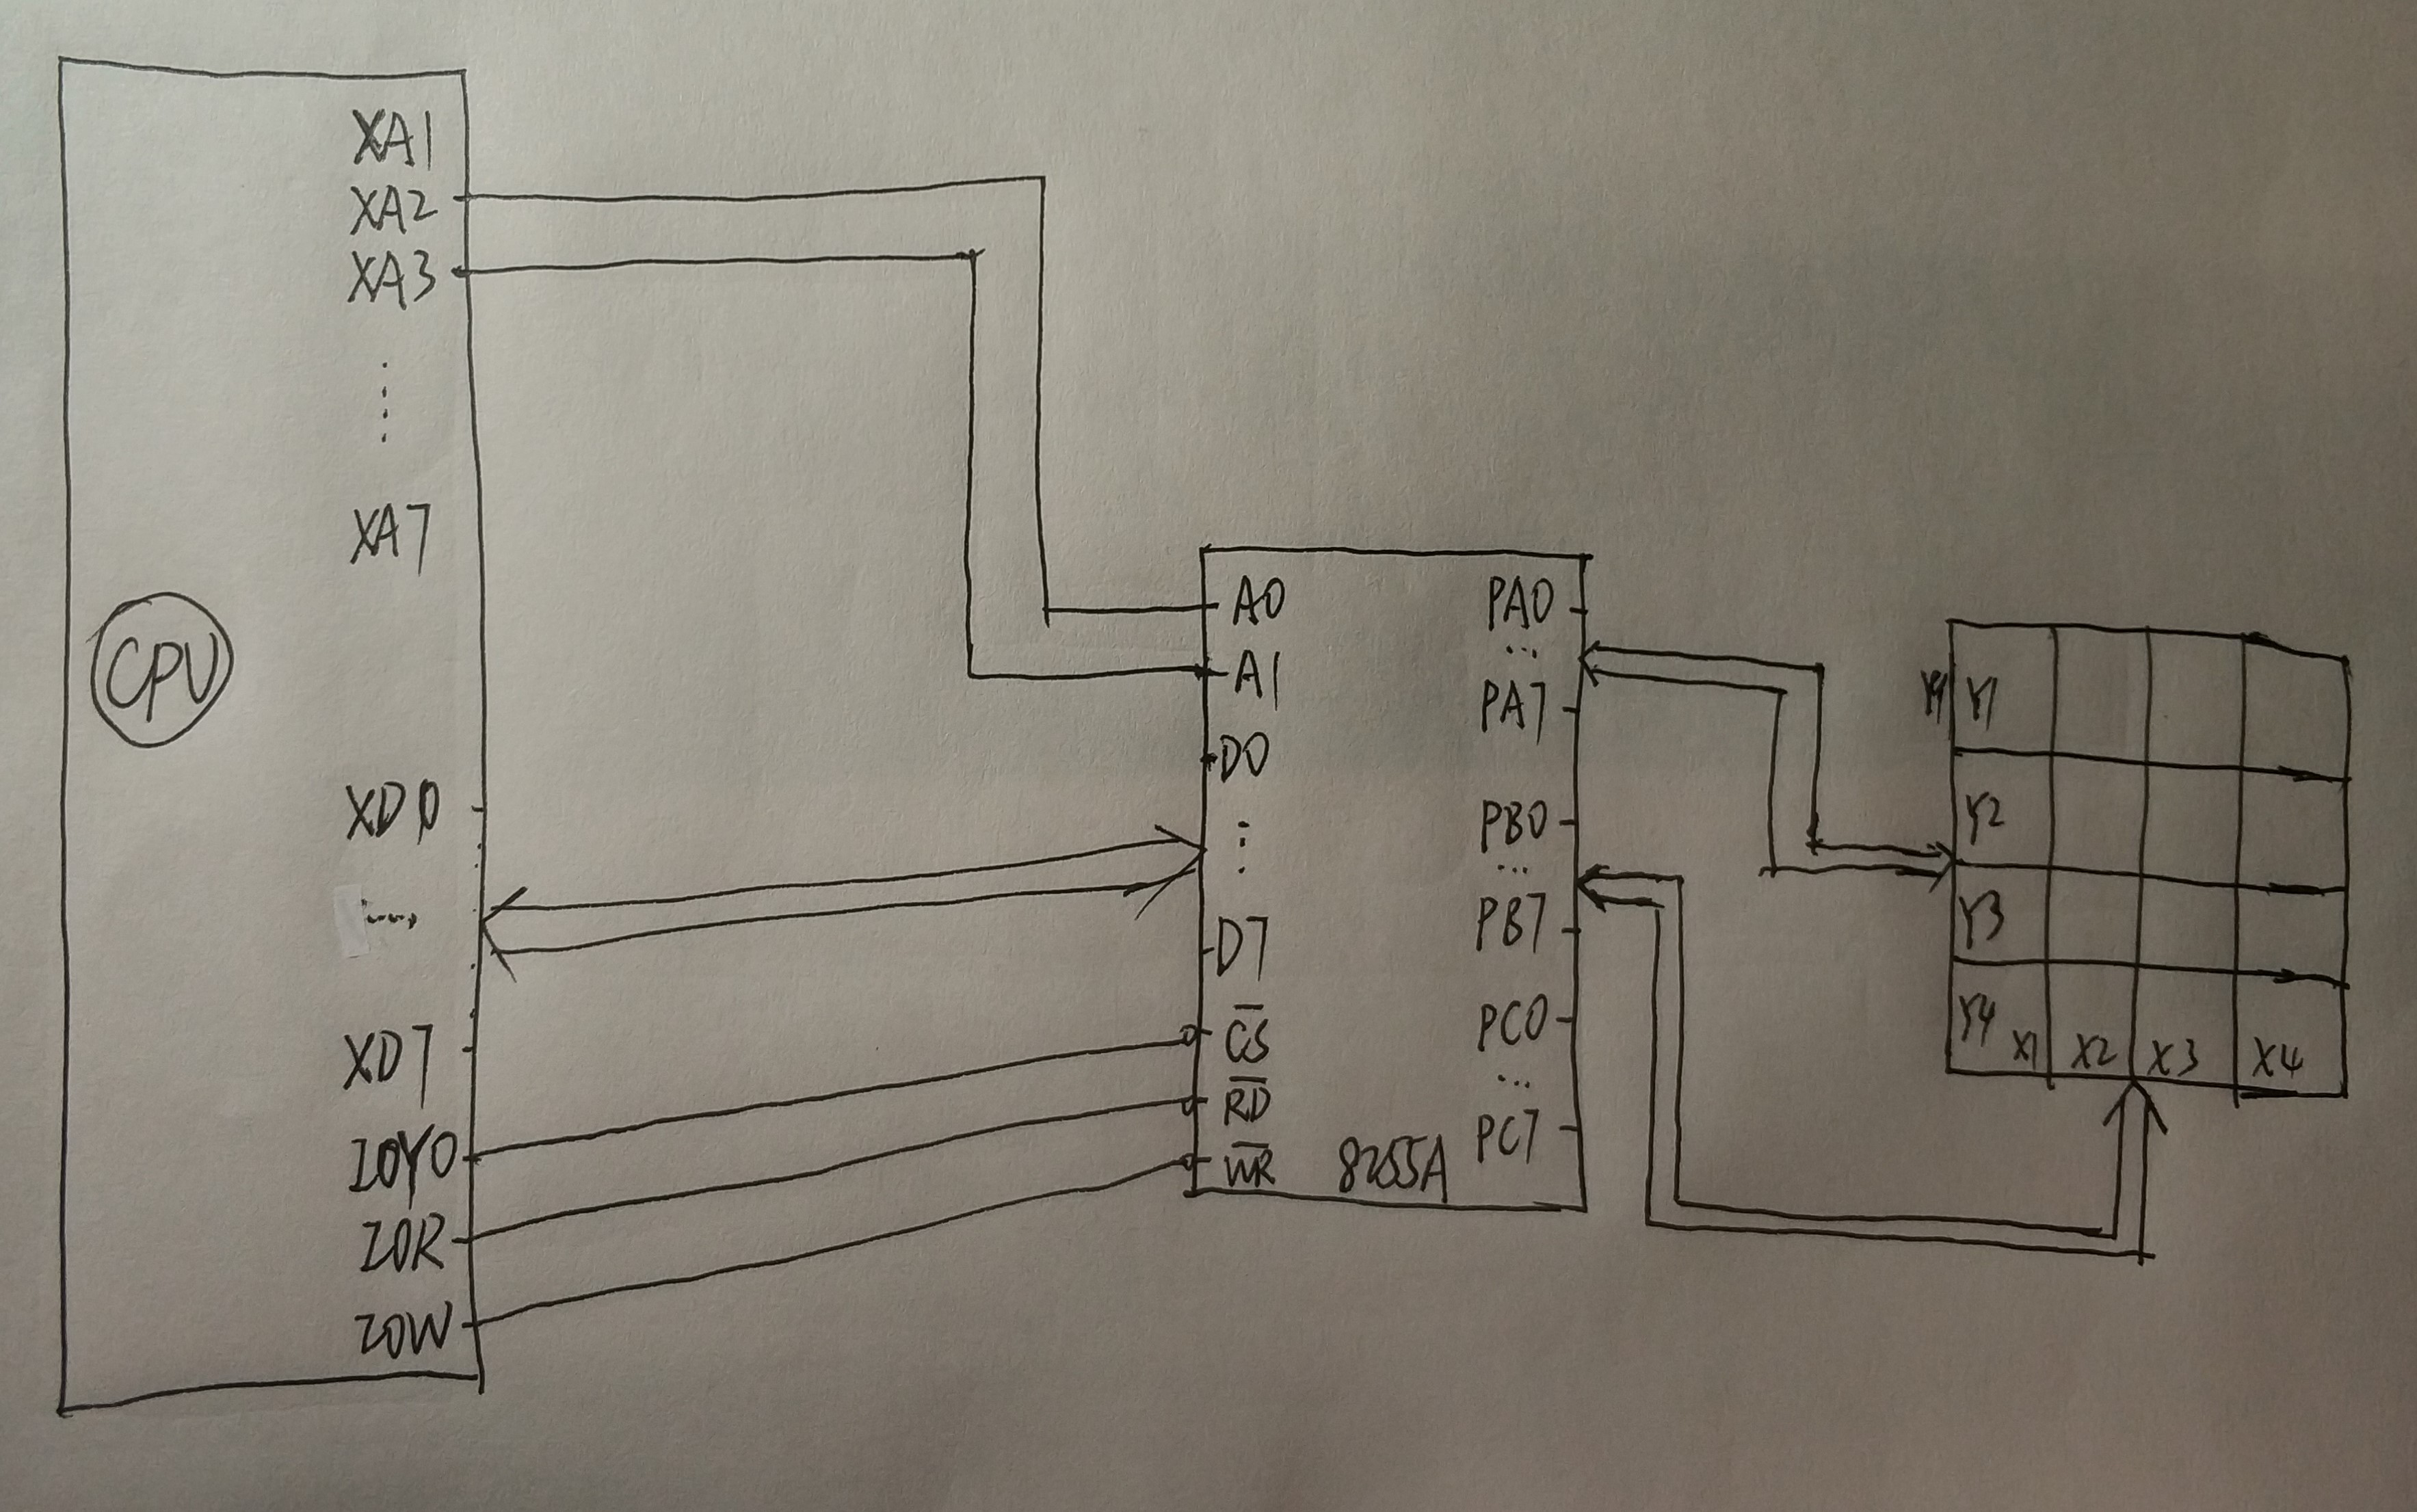 XA1
XA2
XA3
⋮
XA7
CPU
XD0
....
XD7
IOY0
IOR
IOW
A0
A1
D0
⋮
D7
C̅S̅
R̅D̅
W̅R̅
8255A
PA0
...
PA7
PB0
...
PB7
PC0
...
PC7
Y1
Y2
Y3
Y4
X1 X2 X3 X4